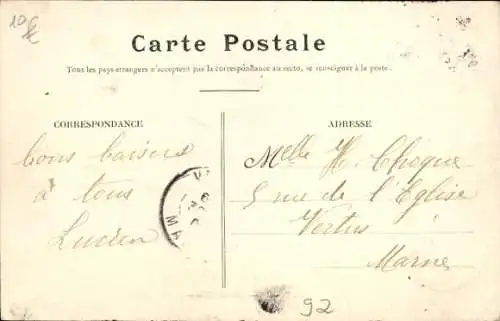 10€
Carte Postale
Tous les pays étrangers n'acceptent pas la correspondance au recto, se renseigner à la poste.
CORRESPONDANCE
ADRESSE
bons baisers
à tous
Lucien
Melle H. Choque
5 rue de l'Eglise
Vertus
Marne
92